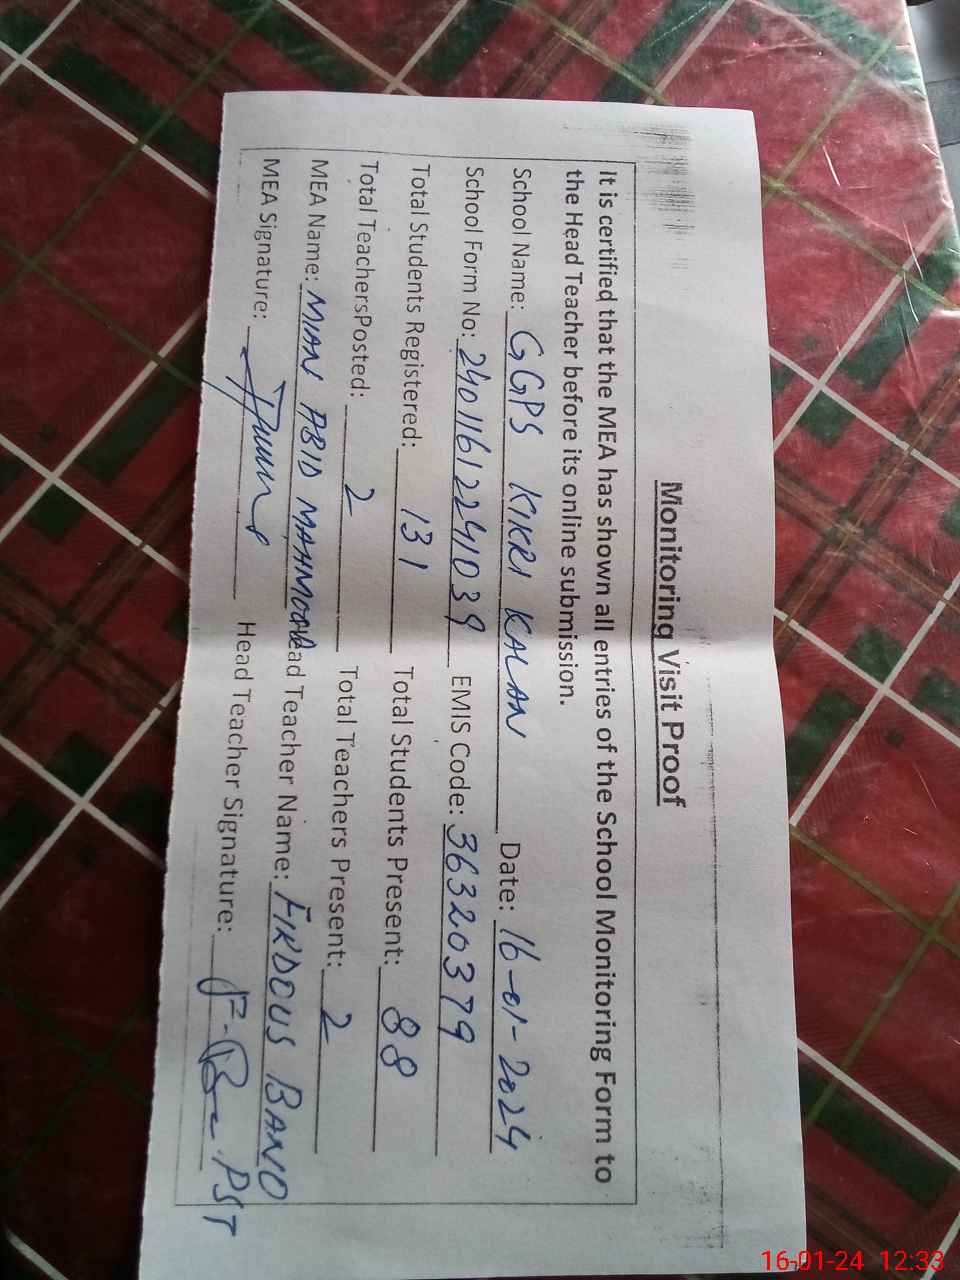 Monitoring Visit Proof
It is certified that the MEA has shown all entries of the School Monitoring Form to
the Head Teacher before its online submission.
School Name: GGPS KIKRI KALAN Date: 16-01-2024
School Form No: 24011612241039 EMIS Code: 36320379
Total Students Registered: 131 Total Students Present: 88
Total TeachersPosted: 2 Total Teachers Present: 2
MEA Name: MIAN ABID MAHMOOD ead Teacher Name: FIRDOUS BANO
MEA Signature: Head Teacher Signature: PST
16-01-24 12:33